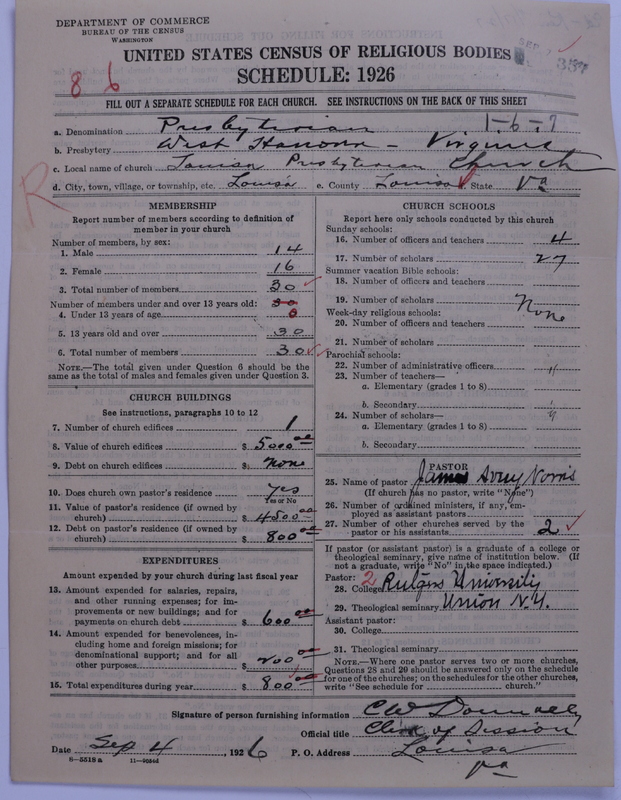 DEPARTMENT OF COMMERCE
BUREAU OF THE CENSUS
WASHINGTON
UNITED STATES CENSUS OF RELIGIOUS BODIES
SCHEDULE: 1926
8 6
FILL OUT A SEPARATE SCHEDULE FOR EACH CHURCH. SEE INSTRUCTIONS ON THE BACK OF THIS SHEET
1-6-7
a. Denomination Presbyterian
b. Presbytery West Hanover - Virginia
c. Local name of church Louisa Presbyterian Church
d. City, town, village, or township, etc. Louisa e. County Louisa State Va
R
MEMBERSHIP
Report number of members according to definition of
member in your church
Number of members, by sex:
1. Male 14
2. Female 16
3. Total number of members 30
Number of members under and over 13 years old: 30
4. Under 13 years of age 0
5. 13 years old and over 30
6. Total number of members 30
NOTE.—The total given under Question 6 should be
same as the total of males and females given under Question 3.
CHURCH BUILDINGS
See instructions, paragraphs 10 to 12
7. Number of church edifices 1
8. Value of church edifices $ 5000 00
9. Debt on church edifices $ None
10. Does church own pastor's residence yes
Yes or No
11. Value of pastor's residence (if owned by
church) $ 4500 00
12. Debt on pastor's residence (if owned by
church) $ 800 00
EXPENDITURES
Amount expended by your church during last fiscal year
13. Amount expended for salaries, repairs,
and other running expenses; for im-
provements or new buildings; and for
payments on church debt $ 600 00
14. Amount expended for benevolences, in-
cluding home and foreign missions; for
denominational support; and for all
other purposes $ 200 00
15. Total expenditures during year $ 800 00
CHURCH SCHOOLS
Report here only schools conducted by this church
Sunday schools:
16. Number of officers and teachers 4
17. Number of scholars 27
Summer vacation Bible schools:
18. Number of officers and teachers
19. Number of scholars None
Week-day religious schools:
20. Number of officers and teachers
21. Number of scholars
Parochial schools:
22. Number of administrative officers "
23. Number of teachers—
a. Elementary (grades 1 to 8)
b. Secondary
24. Number of scholars—
a. Elementary (grades 1 to 8)
b. Secondary
PASTOR
25. Name of pastor James Avery Norris
(If church has no pastor, write "None")
26. Number of ordained ministers, if any, em-
ployed as assistant pastors
27. Number of other churches served by the
pastor or his assistants 2
If pastor (or assistant pastor) is a graduate of a college or
theological seminary, give name of institution below. (If
not a graduate, write "No" in the space indicated.)
Pastor: 2
28. College Rutgers University
29. Theological seminary Union N.Y.
Assistant pastor:
30. College
31. Theological seminary
NOTE.—Where one pastor serves two or more churches,
Questions 28 and 29 should be answered only on the schedule
for one of the churches; on the schedules for the other churches,
write "See schedule for church."
Signature of person furnishing information CW Donnally
Official title Clerk of Session
Date Sep 4 1926 P. O. Address Louisa
Va
8—5518 a